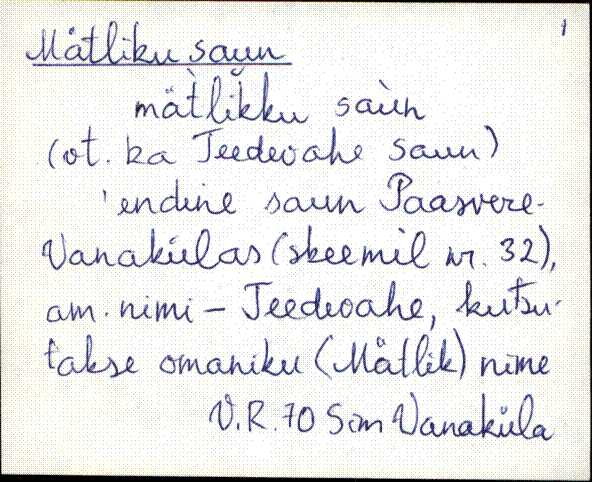 1
Mätliku saun
mä̀tlikku saùn
(ot. ka Teedevahe saun)
'endine saun Paasvere-
Vanakülas (skeemil nr. 32),
am. nimi – Teedevahe, kutsu-
takse omaniku (Mätlik) nime
V.R. 70 Sim Vanaküla